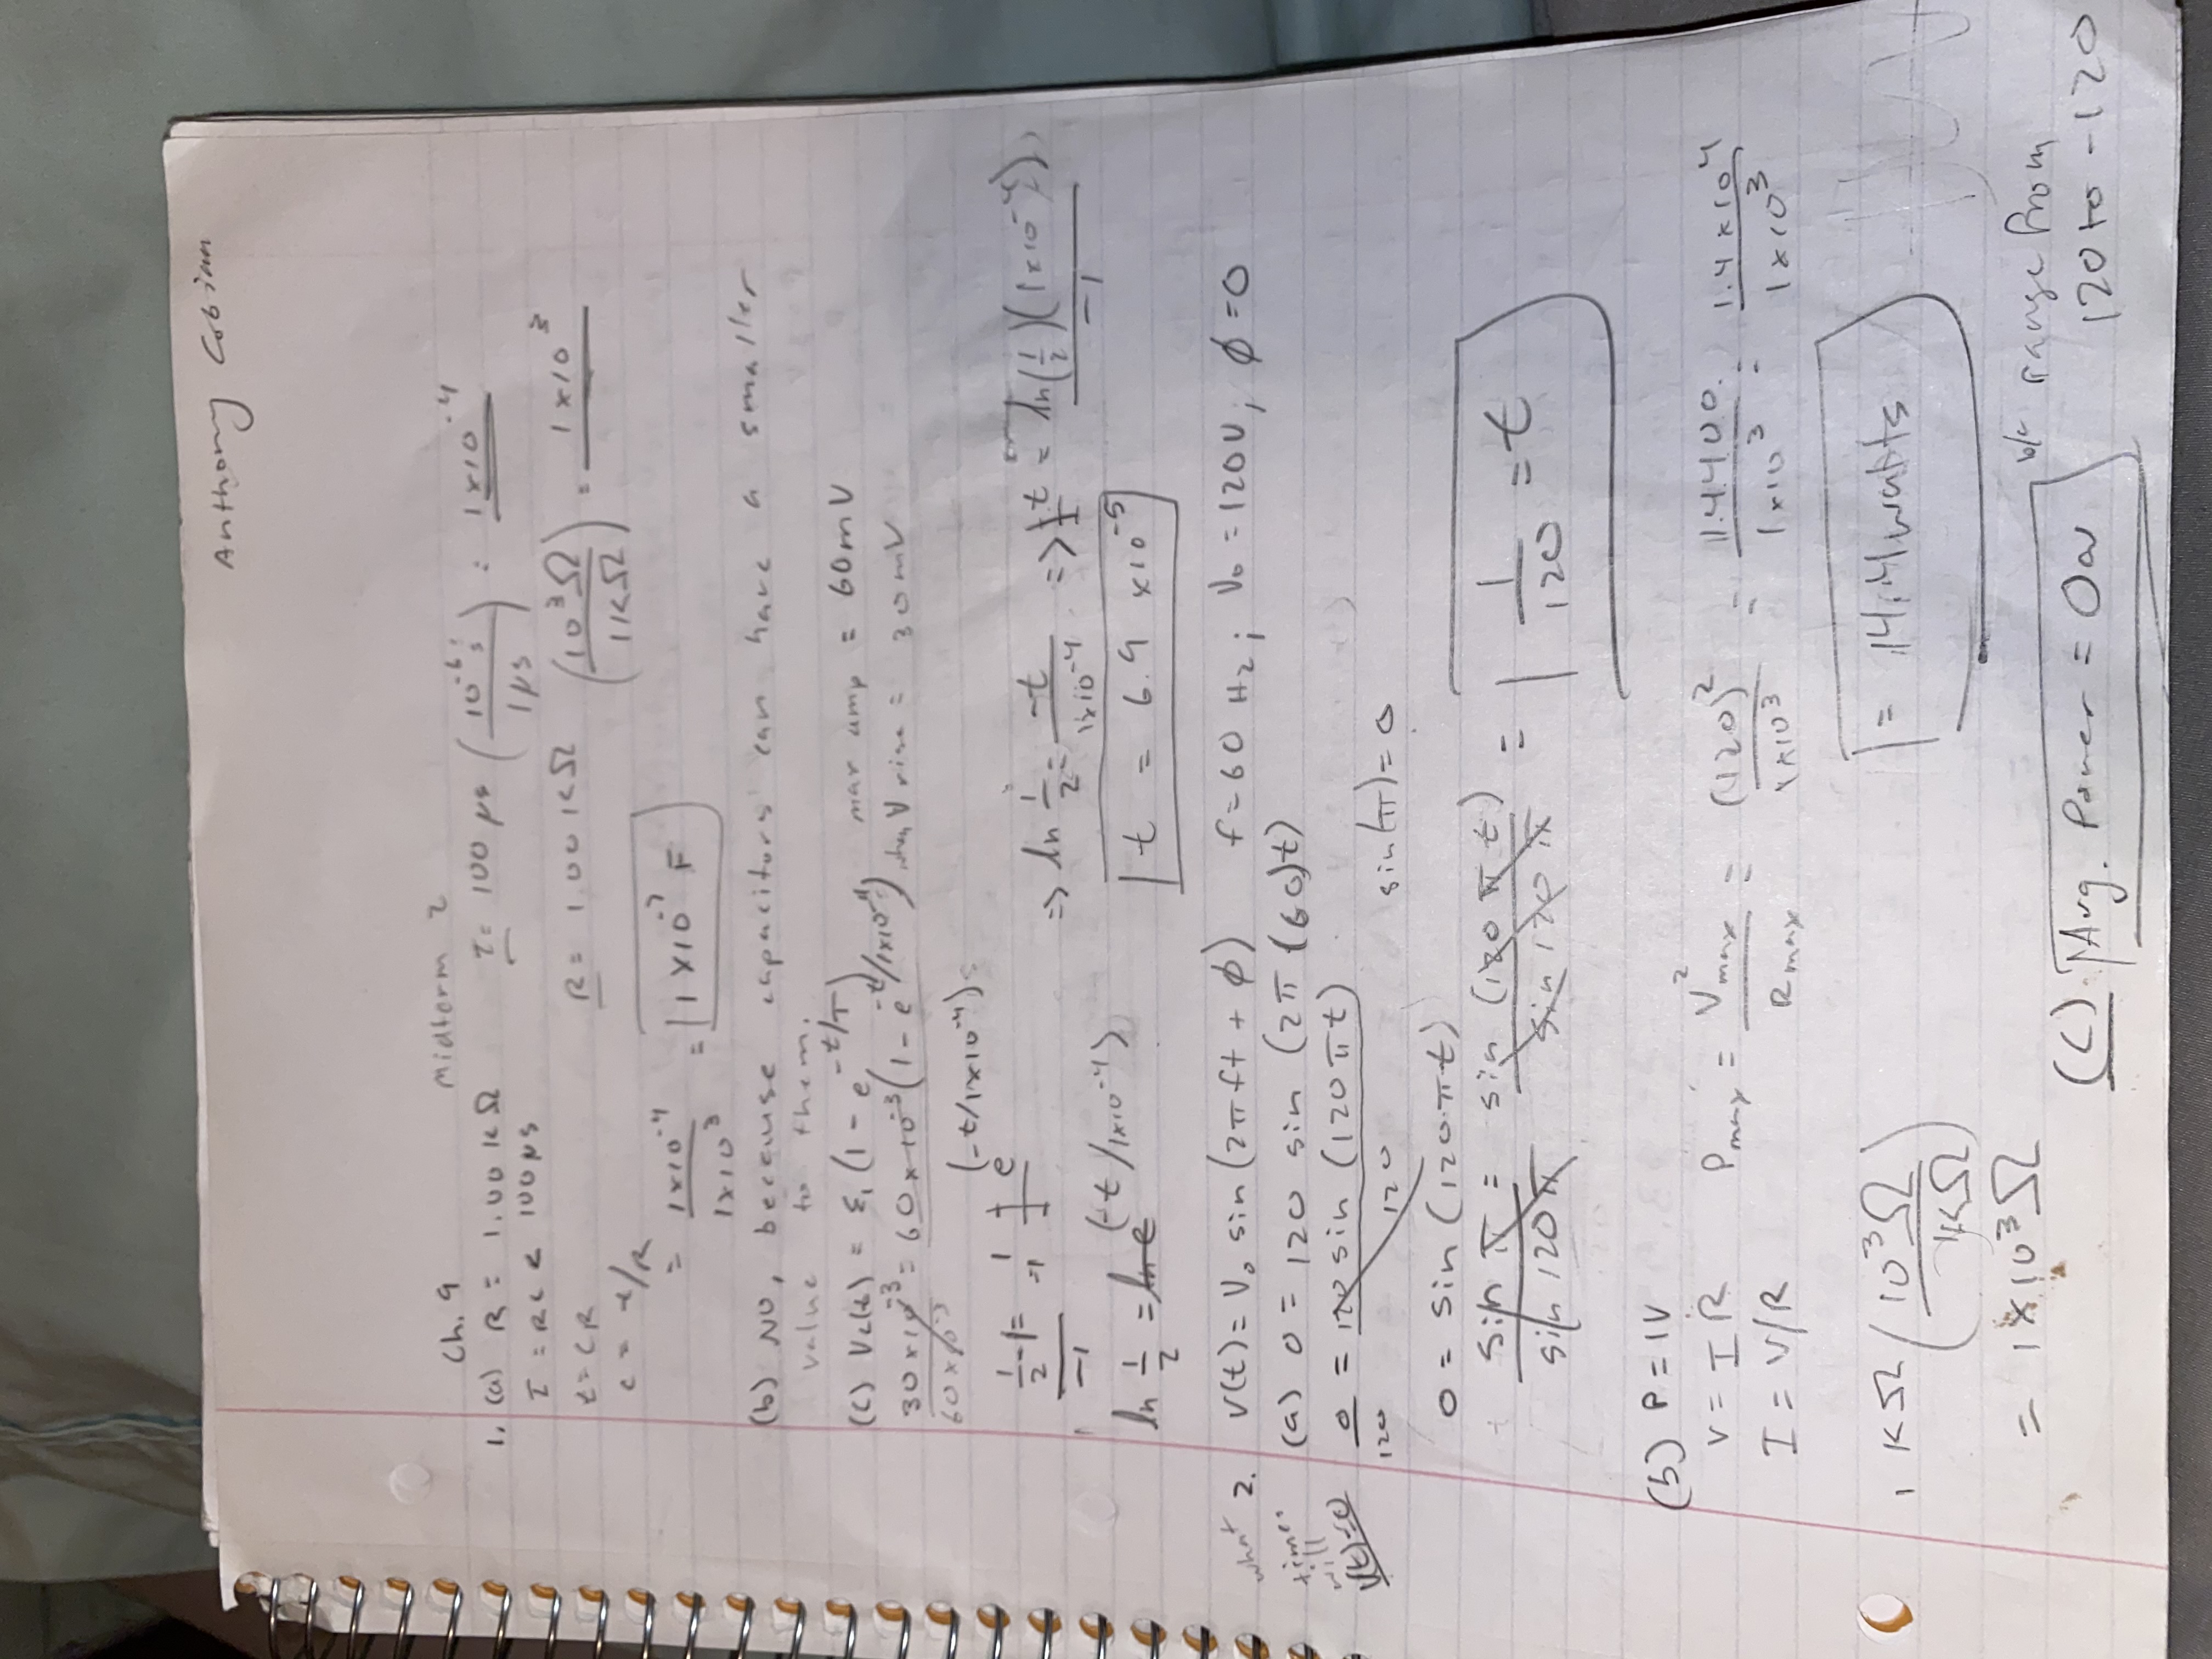 Anthony Cobian
Ch. 9 Midterm 2
1. (a) R = 1.00 kΩ τ = 100 μs (10⁻⁶ s / 1 μs) = 1×10⁻⁴
τ = RC < 100 μs
t = CR R = 1.00 kΩ (10³Ω / 1kΩ) = 1×10³
c = t/R
= 1×10⁻⁴ / 1×10³ = 1×10⁻⁷ F
(b) NO, because capacitors can have a smaller
value to them.
(c) Vc(t) = ε₁ (1 - e^(-t/τ)) max amp = 60mV
30×10⁻³ / 60×10⁻³ = 60×10⁻³ (1 - e^(-t/1×10⁻⁴)) when V rise = 30mV
1/2 - 1 = 1 - 1 + e^(-t/1×10⁻⁴)
-1
⇒ ln 1/2 = -t / 1×10⁻⁴ ⇒ t = ln(1/2)(1×10⁻⁴) / -1
ln 1/2 = ln e^(-t/1×10⁻⁴) t = 6.9 ×10⁻⁵
what time will V(t)=0
2. V(t) = V₀ sin(2πft + φ) f = 60 Hz; V₀ = 120V; φ = 0
(a) 0 = 120 sin (2π(60)t)
0/120 = 120 sin (120πt) / 120
sin(π) = 0
0 = sin (120πt)
sin π / sin 120π = sin (120πt) / sin 120π = 1/120 = t
(b) P = IV
V = IR Pmax = V²max / Rmax = (120)² / 1×10³ = 14400 / 1×10³ = 1.4×10⁴ / 1×10³
I = V/R
= 14.4 watts
1 kΩ (10³Ω / 1kΩ)
= 1×10³Ω
(c) Avg. Power = 0w b/c range from
120 to -120